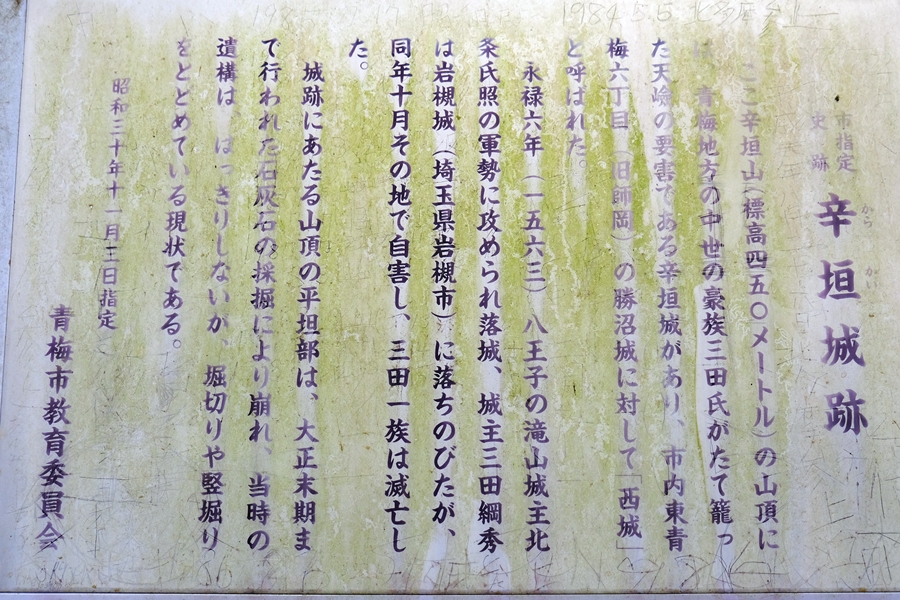 市指定
史跡
辛垣城跡
からかい
ここ辛垣山(標高四五〇メートル)の山頂に
は、青梅地方の中世の豪族三田氏がたて籠っ
た天嶮の要害である辛垣城があり、市内東青
梅六丁目(旧師岡)の勝沼城に対して「西城」
と呼ばれた。
永禄六年(一五六三)八王子の滝山城主北
条氏照の軍勢に攻められ落城、城主三田綱秀
は岩槻城(埼玉県岩槻市)に落ちのびたが、
同年十月その地で自害し、三田一族は滅亡し
た。
城跡にあたる山頂の平坦部は、大正末期ま
で行われた石灰石の採掘により崩れ、当時の
遺構は、はっきりしないが、堀切りや竪堀り
をとどめている現状である。
昭和三十年十一月三日指定
青梅市教育委員会
1984.5.5